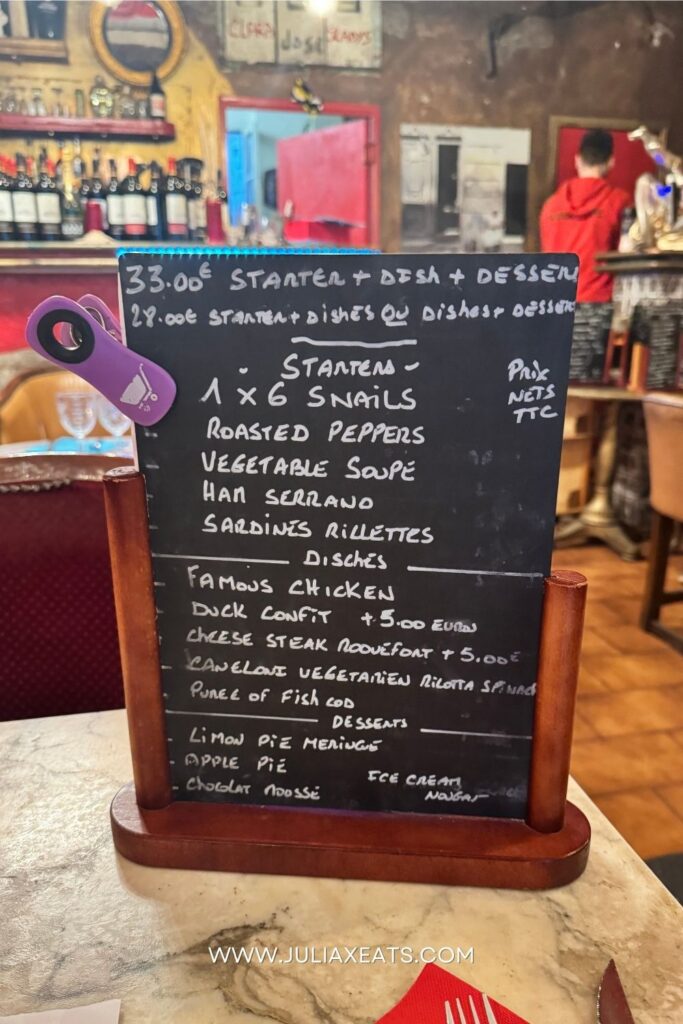 CLARA José GLADYS
33.00€ STARTER + DISH + DESSERT
28.00€ STARTER + DISHES OU DISHES + DESSERT
STARTERS
PRIX
NETS
TTC
1 x 6 SNAILS
ROASTED PEPPERS
VEGETABLE SOUPE
HAM SERRANO
SARDINES RILLETTES
DISCHES
FAMOUS CHICKEN
DUCK CONFIT +5.00 EUROS
CHEESE STEAK ROQUEFORT +5.00€
CANELONI VEGETARIEN RICOTTA SPINACH
PUREE OF FISH COD
DESSERTS
- LIMON PIE MERINGUE
- APPLE PIE
- CHOCOLAT MOUSSE
ICE CREAM
NOUGAT
WWW.JULIAXEATS.COM